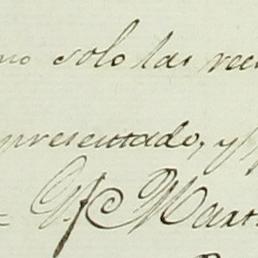 no solo las rec
presentado, y
Mart